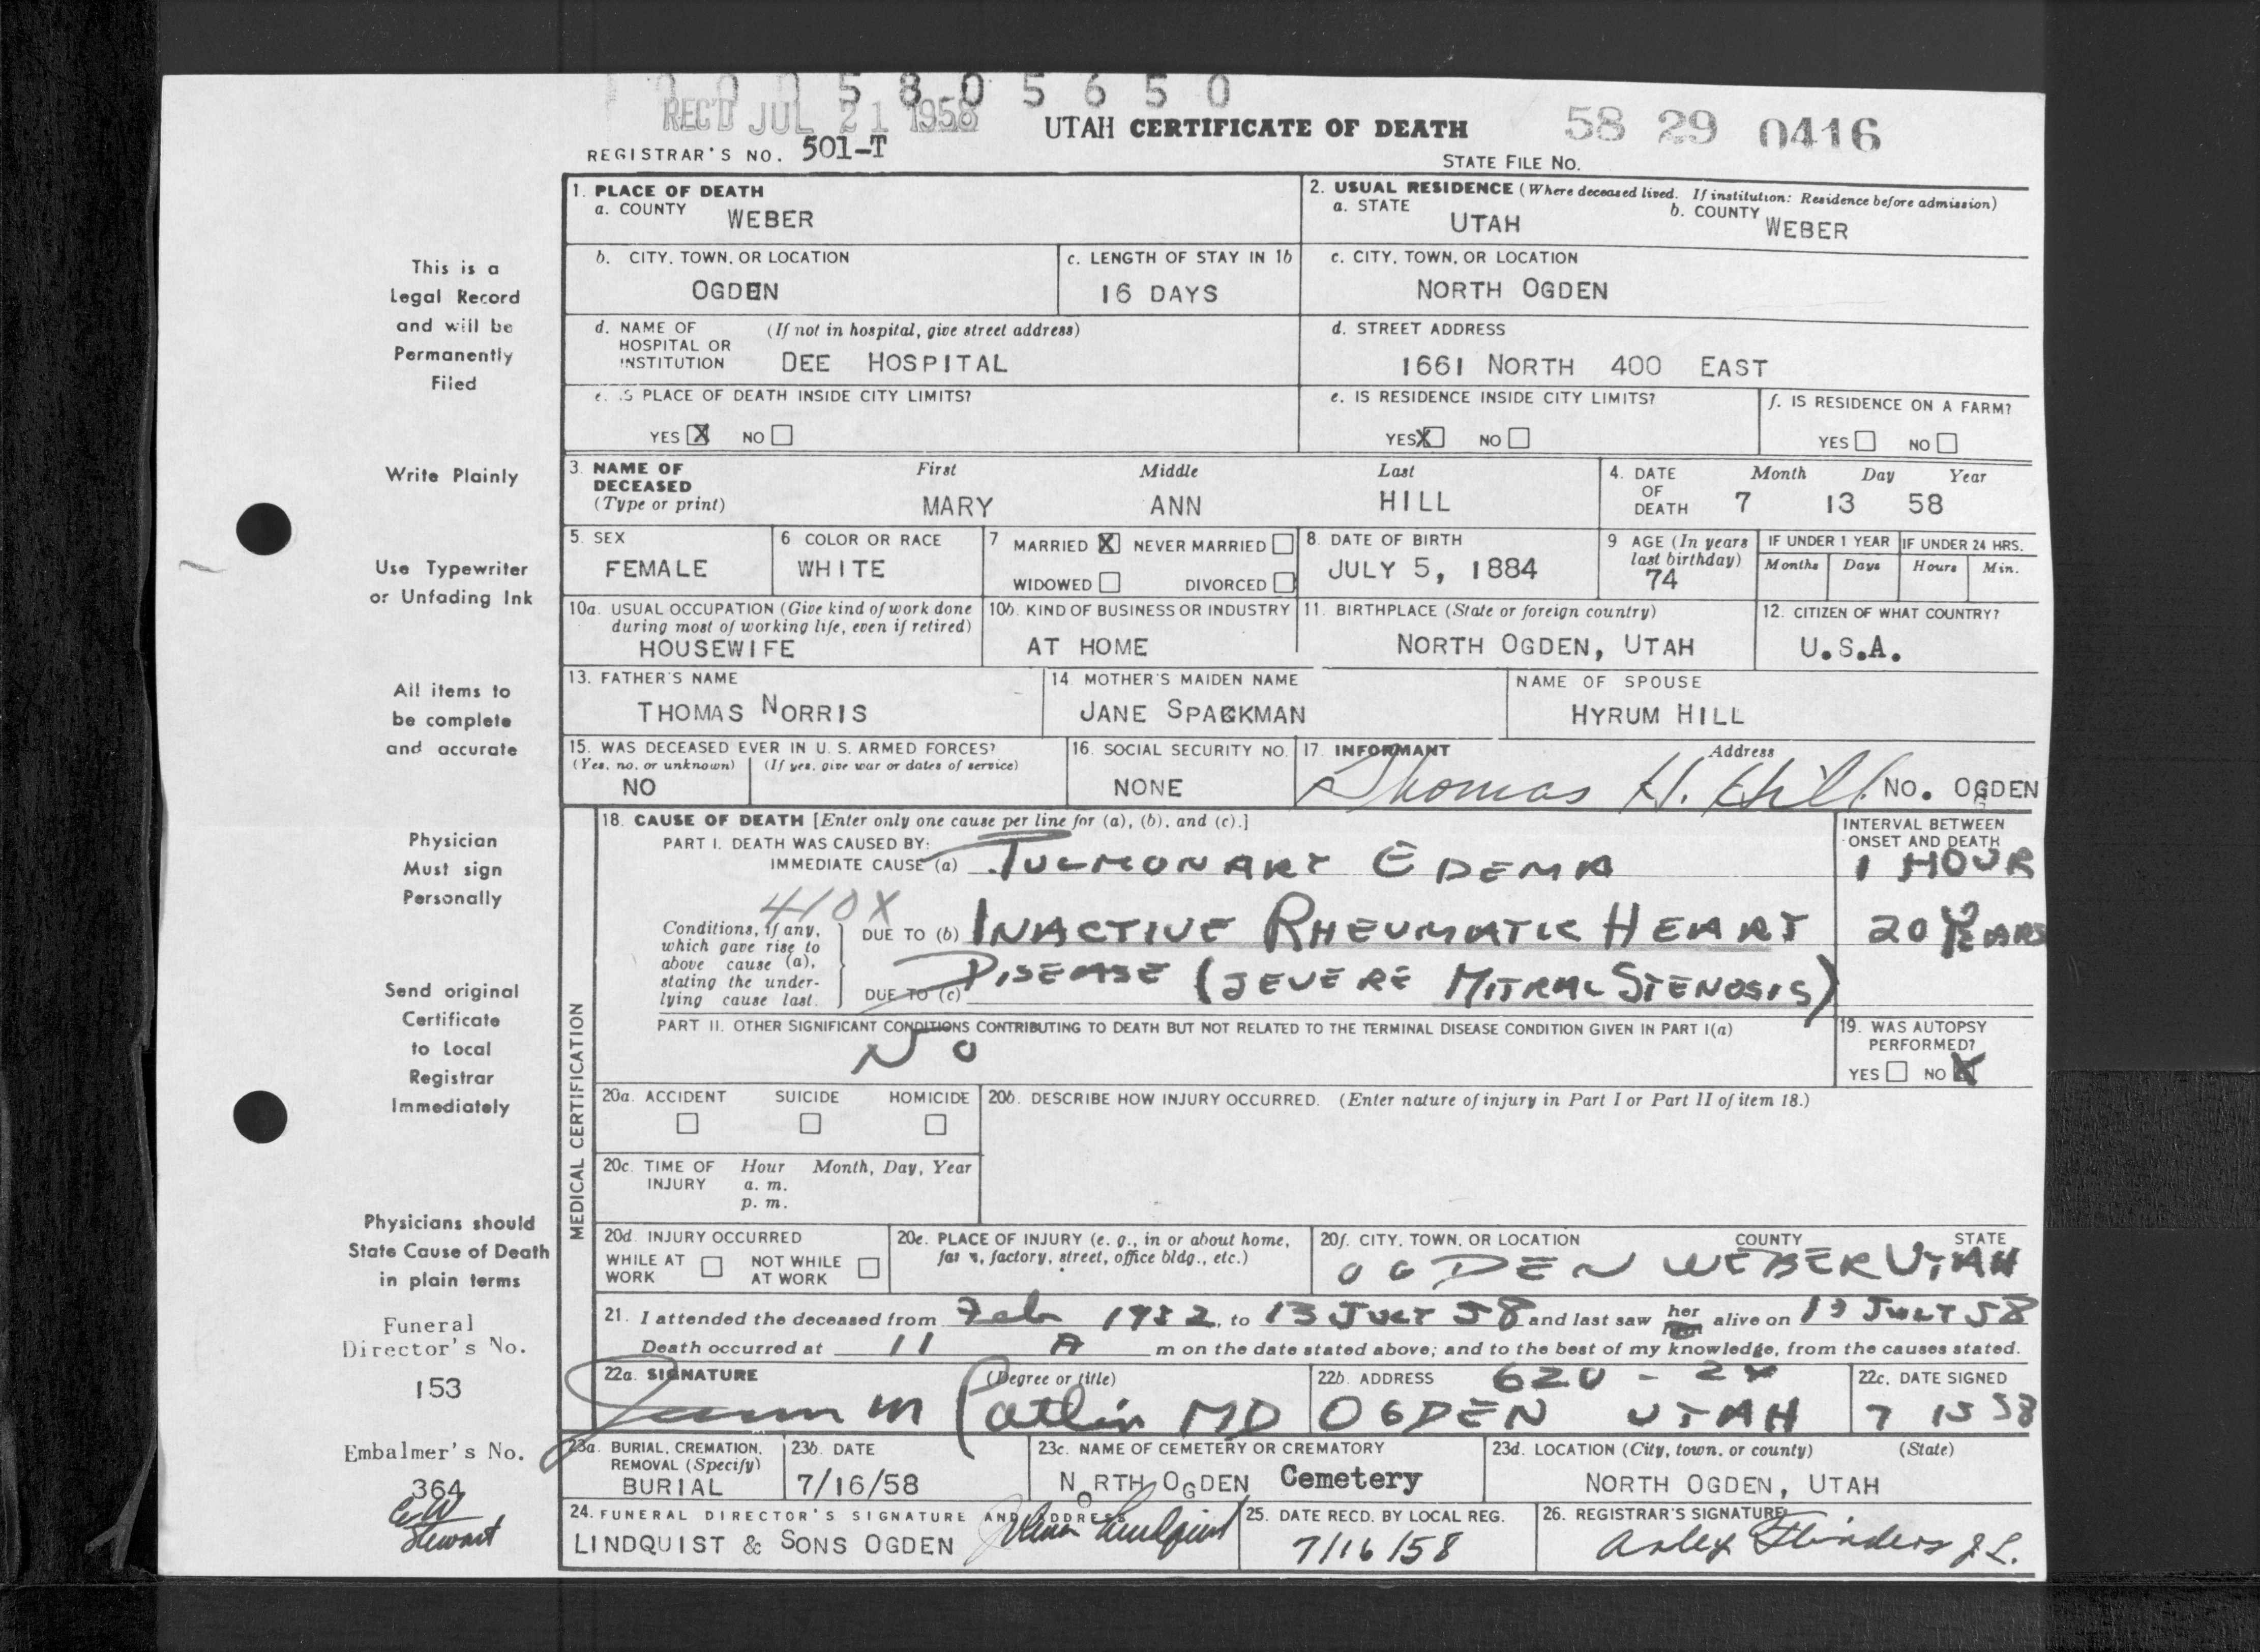 1 0 0 5 8 0 5 6 5 0
REC'D JUL 21 1958
UTAH CERTIFICATE OF DEATH
58 29 0416
REGISTRAR'S NO. 501-T
STATE FILE NO.
1. PLACE OF DEATH
a. COUNTY WEBER
2. USUAL RESIDENCE (Where deceased lived. If institution: Residence before admission)
a. STATE UTAH b. COUNTY WEBER
b. CITY, TOWN, OR LOCATION OGDEN
c. LENGTH OF STAY IN 1b 16 DAYS
c. CITY, TOWN, OR LOCATION NORTH OGDEN
d. NAME OF HOSPITAL OR INSTITUTION (If not in hospital, give street address) DEE HOSPITAL
d. STREET ADDRESS 1661 NORTH 400 EAST
e. IS PLACE OF DEATH INSIDE CITY LIMITS?
YES X NO
e. IS RESIDENCE INSIDE CITY LIMITS?
YES X NO
f. IS RESIDENCE ON A FARM?
YES NO
3. NAME OF DECEASED (Type or print)
First Middle Last
MARY ANN HILL
4. DATE OF DEATH Month Day Year
7 13 58
5. SEX FEMALE
6 COLOR OR RACE WHITE
7 MARRIED X NEVER MARRIED
WIDOWED DIVORCED
8. DATE OF BIRTH JULY 5, 1884
9 AGE (In years last birthday) 74
IF UNDER 1 YEAR Months Days
IF UNDER 24 HRS. Hours Min.
10a. USUAL OCCUPATION (Give kind of work done during most of working life, even if retired)
HOUSEWIFE
10b. KIND OF BUSINESS OR INDUSTRY
AT HOME
11. BIRTHPLACE (State or foreign country)
NORTH OGDEN, UTAH
12. CITIZEN OF WHAT COUNTRY?
U.S.A.
13. FATHER'S NAME
THOMAS NORRIS
14. MOTHER'S MAIDEN NAME
JANE SPACKMAN
NAME OF SPOUSE
HYRUM HILL
15. WAS DECEASED EVER IN U. S. ARMED FORCES?
(Yes, no, or unknown) (If yes, give war or dates of service)
NO
16. SOCIAL SECURITY NO.
NONE
17. INFORMANT Address
Thomas H. Hill NO. OGDEN
MEDICAL CERTIFICATION
18. CAUSE OF DEATH [Enter only one cause per line for (a), (b), and (c).]
INTERVAL BETWEEN ONSET AND DEATH
PART I. DEATH WAS CAUSED BY:
IMMEDIATE CAUSE (a) PULMONARY EDEMA 1 HOUR
410X
Conditions, if any, which gave rise to above cause (a), stating the underlying cause last.
DUE TO (b) INACTIVE RHEUMATIC HEART 20 YEARS
DUE TO (c) DISEASE (SEVERE MITRAL STENOSIS)
PART II. OTHER SIGNIFICANT CONDITIONS CONTRIBUTING TO DEATH BUT NOT RELATED TO THE TERMINAL DISEASE CONDITION GIVEN IN PART I(a)
NO
19. WAS AUTOPSY PERFORMED?
YES NO X
20a. ACCIDENT SUICIDE HOMICIDE
20b. DESCRIBE HOW INJURY OCCURRED. (Enter nature of injury in Part I or Part II of item 18.)
20c. TIME OF INJURY Hour Month, Day, Year
a. m.
p. m.
20d. INJURY OCCURRED
WHILE AT WORK NOT WHILE AT WORK
20e. PLACE OF INJURY (e. g., in or about home, farm, factory, street, office bldg., etc.)
20f. CITY, TOWN, OR LOCATION COUNTY STATE
OGDEN WEBER UTAH
21. I attended the deceased from Feb 1952, to 13 JULY 58 and last saw her alive on 13 JULY 58
Death occurred at 11 A m on the date stated above; and to the best of my knowledge, from the causes stated.
22a. SIGNATURE (Degree or title)
m Catlin MD
22b. ADDRESS 620 - 24
OGDEN UTAH
22c. DATE SIGNED
7 15 58
23a. BURIAL, CREMATION, REMOVAL (Specify)
BURIAL
23b. DATE
7/16/58
23c. NAME OF CEMETERY OR CREMATORY
NORTH OGDEN Cemetery
23d. LOCATION (City, town, or county) (State)
NORTH OGDEN, UTAH
24. FUNERAL DIRECTOR'S SIGNATURE AND ADDRESS
LINDQUIST & SONS OGDEN Lindquist
25. DATE RECD. BY LOCAL REG.
7/16/58
26. REGISTRAR'S SIGNATURE
Arley Flinders J L.
This is a
Legal Record
and will be
Permanently
Filed
Write Plainly
Use Typewriter
or Unfading Ink
All items to
be complete
and accurate
Physician
Must sign
Personally
Send original
Certificate
to Local
Registrar
Immediately
Physicians should
State Cause of Death
in plain terms
Funeral
Director's No.
153
Embalmer's No.
364
CW
Stewart